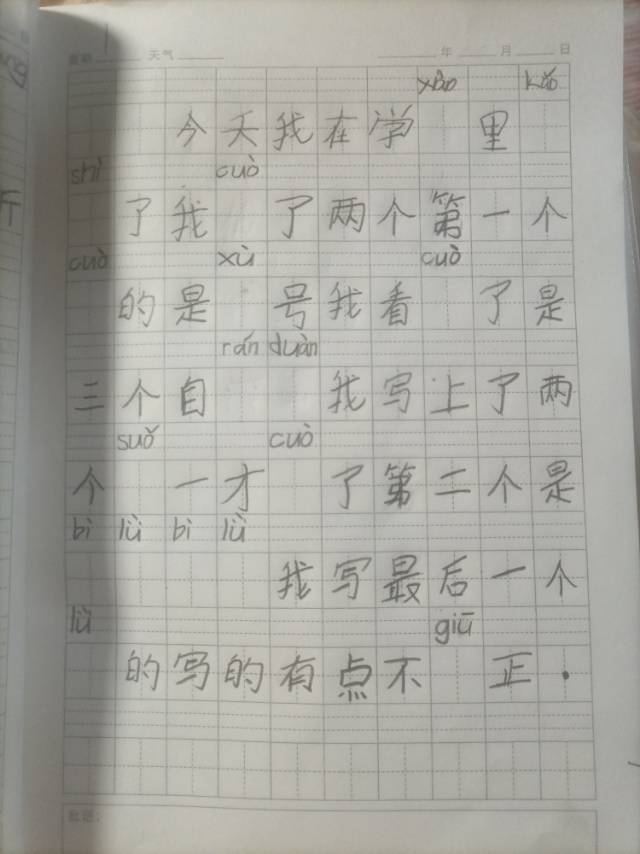 星期 天气 年 月 日
xiào kǎo
今天我在学 里
shì cuò
了我 了两个第一个
cuò xù cuò
的是 号我看 了是
rán duàn
三个自 我写上了两
suǒ cuò
个 一才 了第二个是
bì lǜ bì lǜ
我写最后一个
lǜ giū
的写的有点不 正.
批语: